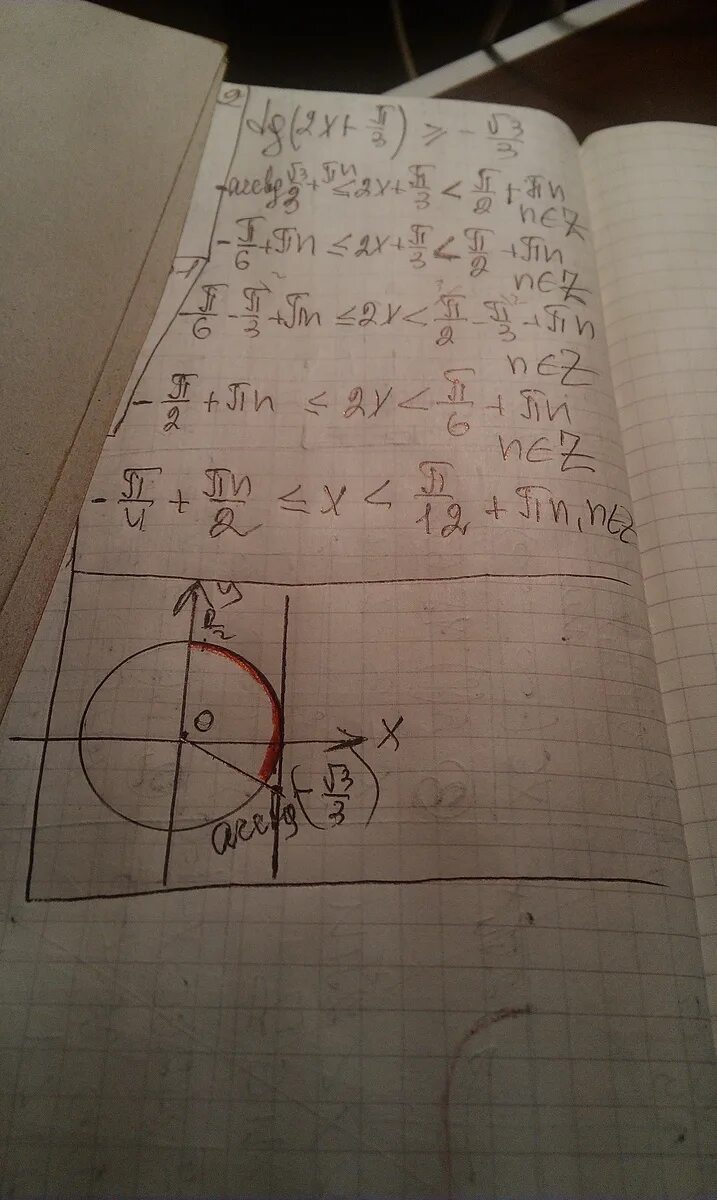 2
tg(2x+π/3) ≥ -√3/3
-arctg √3/3 + πn ≤ 2x+π/3 < π/2 + πn
n∈Z
-π/6 + πn ≤ 2x+π/3 < π/2 + πn
n∈Z
-π/6 - π/3 + πn ≤ 2x < π/2 - π/3 + πn
n∈Z
-π/2 + πn ≤ 2x < π/6 + πn
n∈Z
-π/4 + πn/2 ≤ x < π/12 + πn, n∈Z
y
π/2
O
x
arctg(-√3/3)